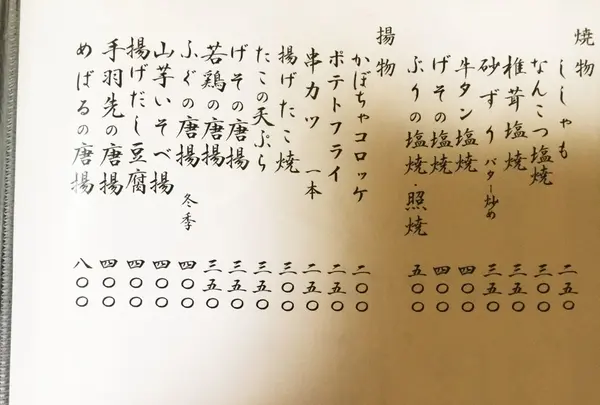 焼物
ししゃも 二五〇
なんこつ塩焼 三〇〇
椎茸塩焼 三五〇
砂ずりバター炒め 三五〇
牛タン塩焼 四〇〇
げその塩焼 四〇〇
ぶりの塩焼・照焼 五〇〇
揚物
かぼちゃコロッケ 二〇〇
ポテトフライ 二五〇
串カツ 一本 二五〇
揚げたこ焼 三〇〇
たこの天ぷら 三五〇
げその唐揚 三五〇
若鶏の唐揚 三五〇
ふぐの唐揚 冬季 四〇〇
山芋いそべ揚 四〇〇
揚げだし豆腐 四〇〇
手羽先の唐揚 四〇〇
めばるの唐揚 八〇〇